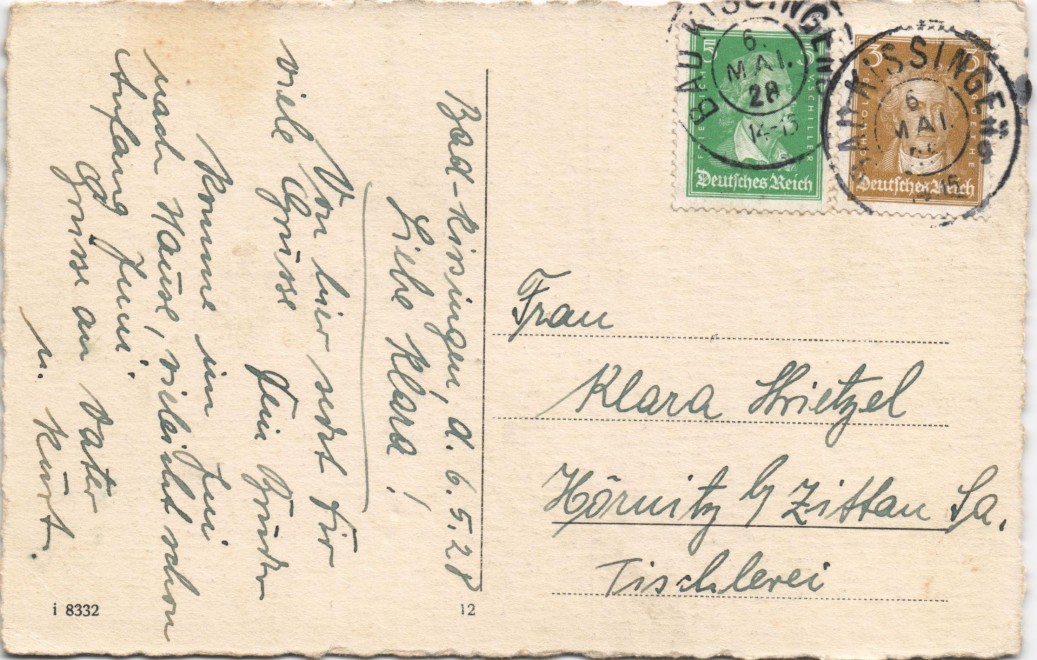 Bad-Kissingen, d. 6.5.28
Liebe Klara!
Von hier sendet Dir
viele Grüsse Dein Bruder
Komme im Juni
nach Hause, vieleicht schon
Anfang Juni
Grüsse an Vater
u. Kurt.
Frau
Klara Hrietzel
Hörnitz b/ Zittau Sa.
Tischlerei
i 8332
12
BAD KISSINGEN
6.
MAI.
28
14-15
5
FRIEDRICH SCHILLER
Deutsches Reich
BAD KISSINGEN
6.
MAI.
3
3
Deutsches Reich